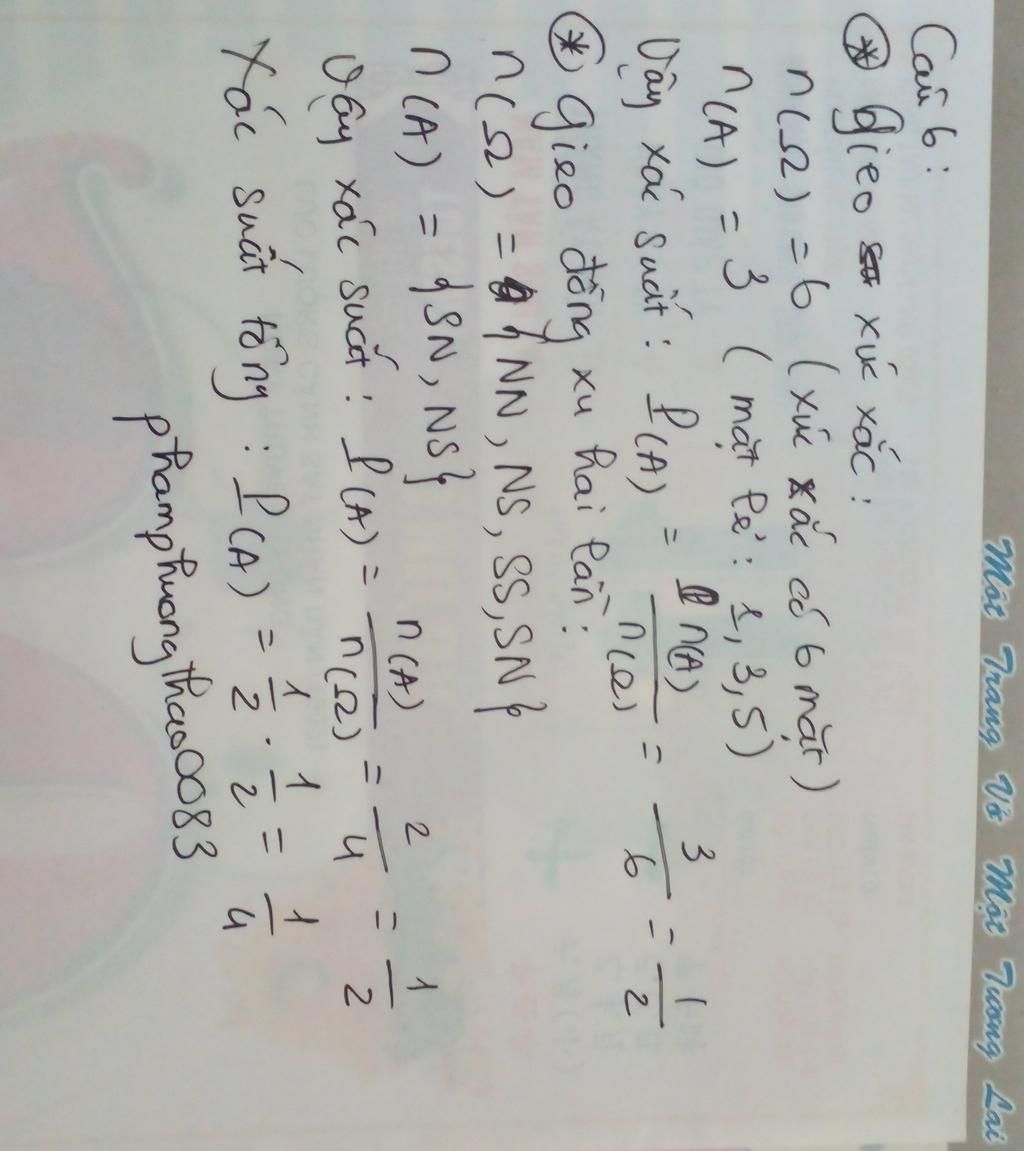 Một Trang Vở Một Tương Lai
Câu 6:
* Gieo xúc xắc:
n(Ω) = 6 (xúc xắc có 6 mặt)
n(A) = 3 (mặt lẻ: 1, 3, 5)
Vậy xác suất: P(A) = n(A)/n(Ω) = 3/6 = 1/2
* Gieo đồng xu hai lần:
n(Ω) = {NN, NS, SS, SN}
n(A) = {SN, NS}
Vậy xác suất: P(A) = n(A)/n(Ω) = 2/4 = 1/2
Xác suất tổng: P(A) = 1/2 . 1/2 = 1/4
phamphuongthao0083